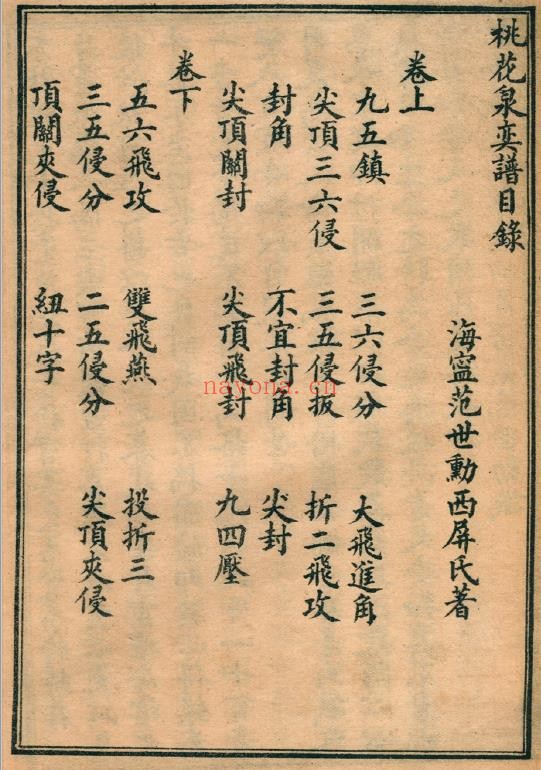 桃花泉奕譜目錄
海寍范世勳西屏氏著
卷上
九五鎮 三六侵分 大飛進角
尖頂三六侵 三五侵扳 折二飛攻
封角 不宜封角 尖封
尖頂關封 尖頂飛封 九四壓
卷下
五六飛攻 雙飛燕 投折三
三五侵分 二五侵分 尖頂夾侵
頂關夾侵 紐十字
nayona.cn